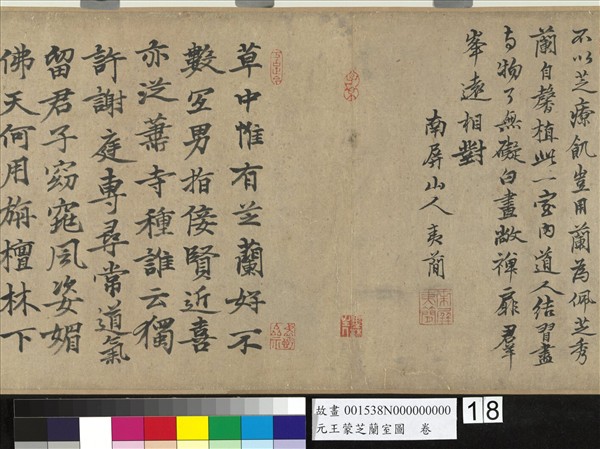 不以芝療飢豈用蘭為佩芝秀
蘭自馨植此一室內道人結習盡
与物了無礙白晝敞禪扉羣
峯遠相對
南屏山人夷簡
草中惟有芝蘭好不
數宜男指佞賢近喜
亦從蕭寺種誰云獨
許謝庭專尋常道氣
留君子窈窕風姿媚
佛天何用旃檀林下
故畫 001538N000000000
元王蒙芝蘭室圖 卷
18